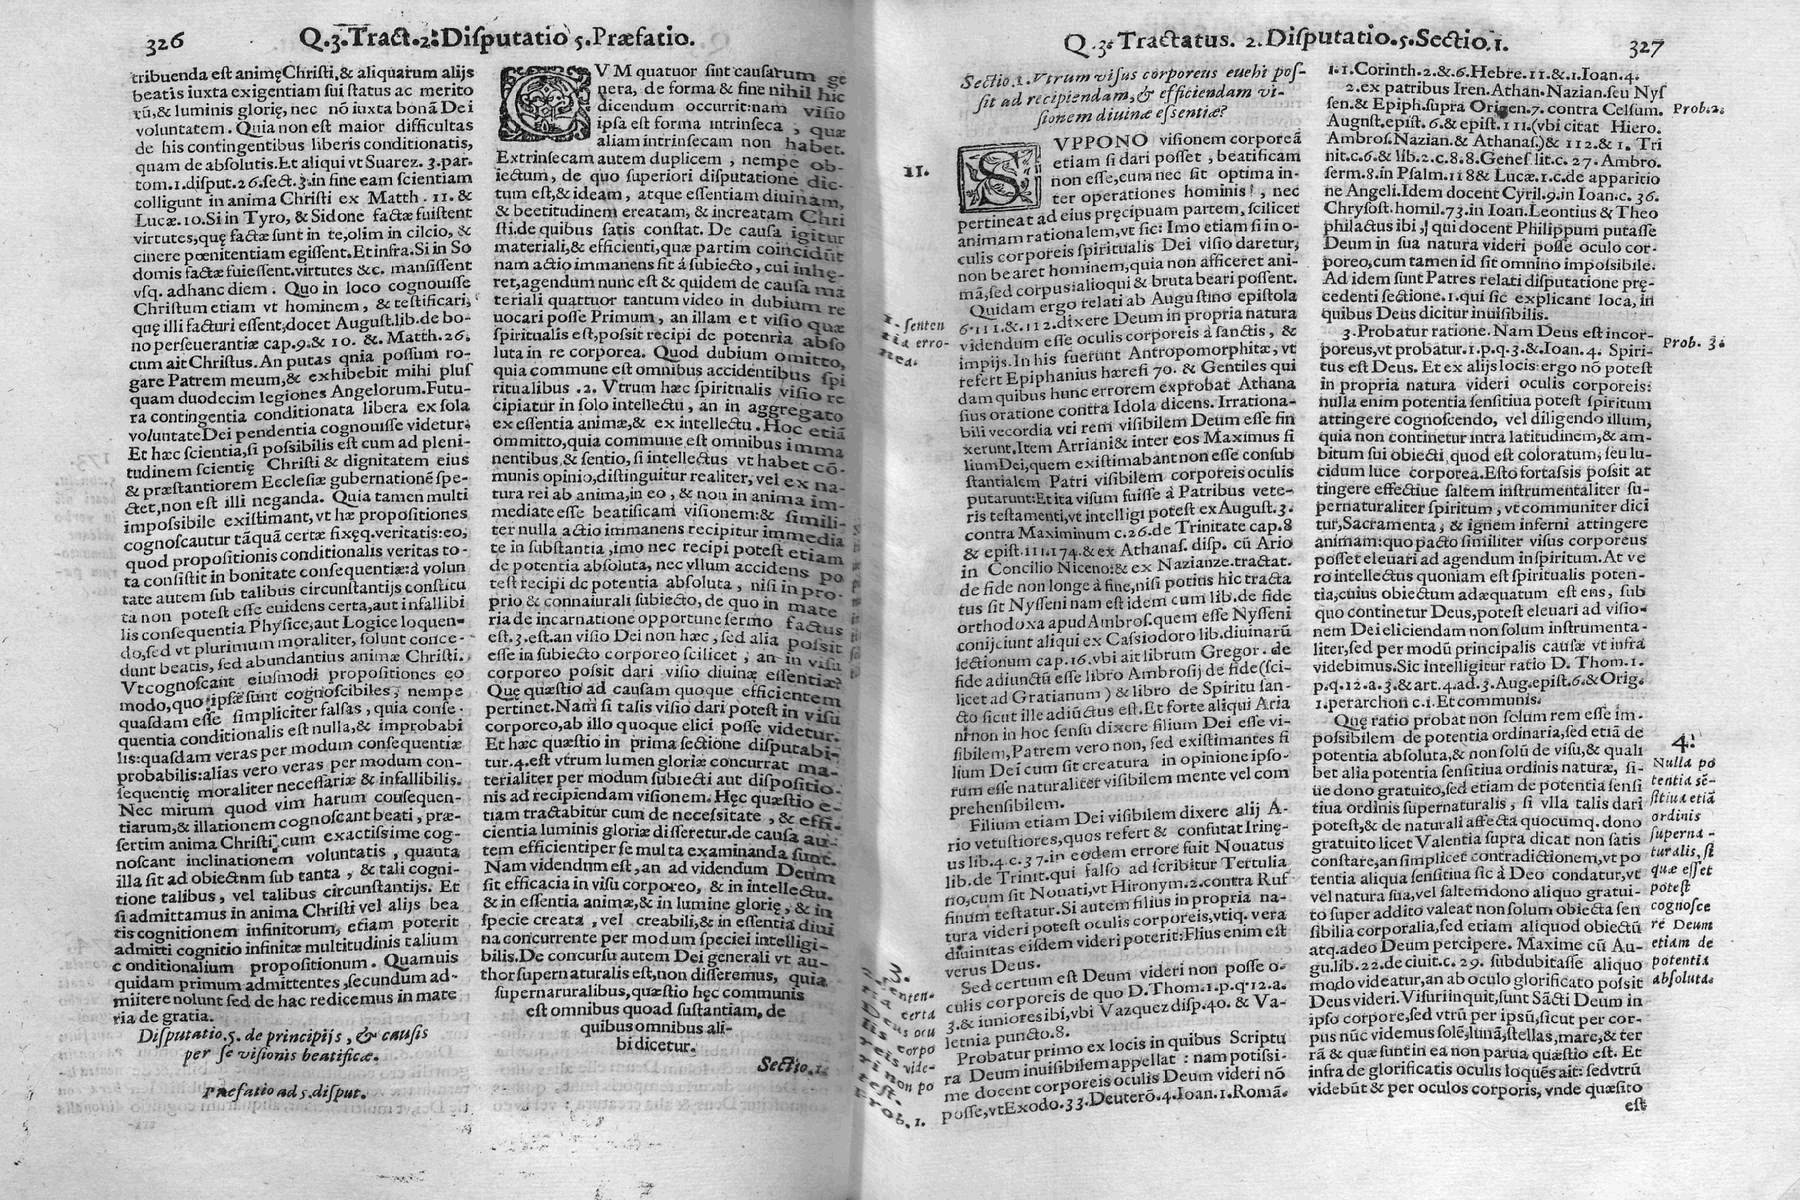 326
Q.3.Tract.2:Disputatio 5.Præfatio.
tribuenda est animę Christi,& aliquarum alijs
beatis iuxta exigentiam sui status ac merito
rū,& luminis glorię, nec nō iuxta bonā Dei
voluntatem. Quia non est maior difficultas
de his contingentibus liberis conditionatis,
quam de absolutis.Et aliqui vt Suarez. 3.par.
tom.1.disput.26.sect.3.in fine eam scientiam
colligunt in anima Christi ex Matth. 11. &
Lucæ.10.Si in Tyro, & Sidone factæ fuissent
virtutes,quę factæ sunt in te,olim in cilcio, &
cinere pœnitentiam egissent.Et infra.Si in So
domis factæ fuiessent.virtutes &c. mansissent
vsq. ad hanc diem. Quo in loco cognouisse
Christum etiam vt hominem, & testificari,
quę illi facturi essent,docet August.lib.de bo-
no perseuerantiæ cap.9.& 10. &. Matth.26.
cum ait Christus.An putas qnia possum ro-
gare Patrem meum,& exhibebit mihi plus
quam duodecim legiones Angelorum.Futu-
ra contingentia conditionata libera ex sola
voluntate Dei pendentia cognouisse videtur.
Et hæc scientia,si possibilis est cum ad pleni-
tudinem scientię Christi & dignitatem eius
& præstantiorem Ecclesiæ gubernationē spe-
ctet,non est illi neganda. Quia tamen multi
impossibile existimant,vt hæ propositiones
cognoscautur tāquā certæ fixęq.veritatis:eo,
quod propositionis conditionalis veritas to-
ta consistit in bonitate consequentiæ:à volun
tate autem sub talibus circunstantijs constitu
ta non potest esse euidens certa,aut infallibi
lis consequentia Physice,aut Logice loquen-
do,sed vt plurimum moraliter, solunt conce-
dunt beatis, sed abundantius animæ Christi.
Vt cognoscant eiusmodi propositiones eo
modo,quo ipsæ sunt cognoscibiles, nempe
quasdam esse simpliciter falsas, quia conse-
quentia conditionalis est nulla,& improbabi
lis:quasdam veras per modum consequentiæ
probabilis:alias vero veras per modum con-
sequentię moraliter necessariæ & infallibilis.
Nec mirum quod vim harum cousequen-
tiarum,& illationem cognoscant beati, præ-
sertim anima Christi,cum exactissime cog-
noscant inclinationem voluntatis, quanta
illa sit ad obiectnm sub tanta, & tali cogni-
tione talibus, vel talibus circunstantijs. Et
si admittamus in anima Christi vel alijs bea
tis cognitionem infinitorum, etiam poterit
admitti cognitio infinitæ multitudinis talium
conditionalium propositionum. Quamuis
quidam primum admittentes,secundum ad-
miitere nolunt sed de hac redicemus in mate
ria de gratia.
Disputatio.5. de principijs, & causis
per se visionis beatificæ.
Præfatio ad 5.disput.
CVM quatuor sint causarum ge
nera, de forma & fine nihil hic
dicendum occurrit:nam visio
ipsa est forma intrinseca, quæ
aliam intrinsecam non habet.
Extrinsecam autem duplicem, nempe ob-
iectum, de quo superiori disputatione dic-
tum est,& ideam, atque essentiam diuinam,
& beetitudinem ereatam, & increatam Chri
sti.de quibus satis constat. De causa igitur
materiali,& efficienti,quæ partim coincidūt
nam actio immanens sit á subiecto, cui inhę-
ret,agendum nunc est & quidem de causa ma
teriali quattuor tantum video in dubium re
uocari posse Primum, an illam et visio quæ
spiritualis est,possit recipi de potenria abso
luta in re corporea. Quod dubium omitto,
quia commune est omnibus accidentibus spi
ritualibus .2. Vtrum hæc spiritualis visio re
cipiatur in solo intellectu, an in aggregato
ex essentia animæ,& ex intellectu. Hoc etiā
ommitto,quia commune est omnibus imma
nentibus,& sentio, si intellectus vt habet cō-
munis opinio,distinguitur realiter, vel ex na-
tura rei ab anima,in eo, & non in anima im-
mediate esse beatificam visionem:& simili-
ter nulla actio immanens recipitur immedia
te in substantia,imo nec recipi potest etiam
de potentia absoluta, nec vllum accidens po
test recipi de potentia absoluta, nisi in pro-
prio & connaturali subiecto, de quo in mate
ria de incarnatione opportune sermo factus
est.3.est.an visio Dei non hæc, sed alia possit
esse in subiecto corporeo scilicet, an in visu
corporeo possit dari visio diuinæ essentiæ?
Quę quæstio ad causam quoque efficientem
pertinet.Nam si talis visio dari potest in visu
corporeo,ab illo quoque elici posse videtur.
Et hæc quæstio in prima sectione disputabi-
tur.4.est vtrum lumen gloriæ concurrat ma-
terialiter per modum subiecti aut dispositio-
nis ad recipiendam visionem. Hęc quæstio e-
tiam tractabitur cum de necessitate, & effi-
cientia luminis gloriæ disseretur.de causa au-
tem efficienti per se multa examinanda sunt.
Nam videndum est,an ad videndum Deum
sit efficacia in visu corporeo, & in intellectu.
& in essentia animæ,& in lumine glorię, & in
specie creata, vel creabili,& in essentia diui
na concurrente per modum speciei intelligi-
bilis.De concursu autem Dei generali vt au-
thor supernaturalis est,non disseremus, quia
supernaturalibus, quæstio hęc communis
est omnibus quoad sustantiam, de
quibus omnibus ali-
bi dicetur.
Sectio.1.
Q.3. Tractatus. 2. Disputatio.5.Sectio.1.
327
Sectio.1.Vtrum visus corporeus euehi pos-
sit ad recipiendam,& efficiendam vi-
sionem diuinæ essentiæ?
11.
SVPPONO visionem corporeā
etiam si dari posset, beatificam
non esse,cum nec sit optima in-
ter operationes hominis, nec
pertineat ad eius pręcipuam partem, scilicet
animam rationalem,vt sic: Imo etiam si in o-
culis corporeis spiritualis Dei visio daretur,
non bearet hominem,quia non afficeret ani-
mā,sed corpus alioqui & bruta beari possent.
1. senten
tia erro-
nea.
Quidam ergo relati ab Augustino epistola
6.111.&.112.dixere Deum in propria natura
videndum esse oculis corporeis à sanctis, &
impijs.In his fuerunt Antropomorphitæ, vt
refert Epiphanius hæresi 70. & Gentiles qui
dam quibus hunc errorem exprobat Athana
sius oratione contra Idola dicens. Irrationa-
bili vecordia vti rem visibilem Deum esse fin
xerunt.Item Arriani & inter eos Maximus fi
lium Dei,quem existimabant non esse consub
stantialem Patri visibilem corporeis oculis
putarunt:Et ita visum fuisse à Patribus vete-
ris testamenti,vt intelligi potest ex August.3.
contra Maximinum c.26.de Trinitate cap.8
& epist.111.174.& ex Athanas. disp. cū Ario
in Concilio Niceno:& ex Nazianze.tractat.
de fide non longe à fine,nisi potius hic tracta
tus sit Nysseni nam est idem cum lib.de fide
orthodoxa apud Ambros.quem esse Nysseni
conijciunt aliqui ex Cassiodoro lib.diuinarū
lectionum cap.16.vbi ait librum Gregor. de
fide adiunctū esse libro Ambrosij de fide(sci-
licet ad Gratianum) & libro de Spiritu san-
cto sicut ille adiūctus est.Et forte aliqui Aria
ni non in hoc sensu dixere filium Dei esse vi-
sibilem,Patrem vero non, sed existimantes fi
lium Dei cum sit creatura in opinione ipso-
rum esse naturaliter visibilem mente vel com
prehensibilem.
Filium etiam Dei visibilem dixere alij A-
rio vetustiores,quos refert & confutat Irinę-
us lib.4.c.37.in eodem errore fuit Nouatus
lib.de Trinit.qui falso ad scribitur Tertulia
no,cum sit Nouati,vt Hironym.2.contra Ruf
finum testatur.Si autem filius in propria na-
tura videri potest oculis corporeis,vtiq. vera
diuinitas eisdem videri poterit:Flius enim est
verus Deus.
3.
Senten-
tia certa
Deus ocu
lis corpo
reis vide-
ri non po
test.
Prob. 1.
Sed certum est Deum videri non posse o-
culis corporeis de quo D.Thom.1.p.q.12.a.
3.& iuniores ibi,vbi Vazquez disp.40. & Va-
letnia puncto.8.
Probatur primo ex locis in quibus Scriptu
ra Deum inuisibilem appellat: nam potissi-
me docent corporeis oculis Deum videri nō
posse,vt Exodo.33.Deuterō.4.Ioan.1.Romā.
1.1.Corinth.2.&.6.Hebre.11.&.1.Ioan.4.
2.ex patribus Iren.Athan.Nazian.seu Nys
sen.& Epiph.supra Origen.7. contra Celsum.
Prob.2.
Augnst.epist.6.& epist.111.(vbi citat Hiero.
Ambros.Nazian.& Athanas.)& 112.& 1. Tri
nit.c.6.& lib.2.c.8.8.Genes lit.c. 27. Ambro.
serm.8.in Psalm.118& Lucæ.1.c.de apparitio
ne Angeli.Idem docent Cyril.9.in Ioan.c. 36.
Chrysost.homil.73.in Ioan.Leontius & Theo
philactus ibi, qui docent Philippum putasse
Deum in sua natura videri posse oculo cor-
poreo,cum tamen id sit omnino impossibile.
Ad idem sunt Patres relati disputatione pręcedenti sectione.1.qui sic explicant loca, in
quibus Deus dicitur inuisibilis.
3.Probatur ratione. Nam Deus est incor-
Prob. 3.
poreus,vt probatur.1.p.q.3.& Ioan.4. Spiri-
tus est Deus. Et ex alijs locis:ergo nō potest
in propria natura videri oculis corporeis:
nulla enim potentia sensitiua potest spiritum
attingere cognoscendo, vel diligendo illum,
quia non continetur intra latitudinem,& am-
bitum sui obiecti, quod est coloratum, seu lu-
cidum luce corporea.Esto fortassis possit at
tingere effectiue saltem instrumentaliter su-
pernaturaliter spiritum, vt communiter dici
tur,Sacramenta, & ignem inferni attingere
animam:quo pacto similiter visus corporeus
posset eleuari ad agendum in spiritum. At ve
ro intellectus quoniam est spiritualis poten-
tia,cuius obiectum adæquatum est ens, sub
quo continetur Deus,potest eleuari ad visio-
nem Dei eliciendam non solum instrumenta-
liter,sed per modū principalis causæ vt infra
videbimus.Sic intelligitur ratio D. Thom.1.
p.q.12.a.3.& art.4.ad.3.Aug.epist.6.& Orig.
1.perarchon c.1.Et communis.
Quę ratio probat non solum rem esse im-
possibilem de potentia ordinaria,sed etiā de
potentia absoluta,& non solū de visu,& quali
bet alia potentia sensitiua ordinis naturæ, si-
ue dono gratuito,sed etiam de potentia sensi
tiua ordinis supernaturalis, si vlla talis dari
potest,& de naturali affecta quocumq. dono
gratuito licet Valentia supra dicat non satis
constare,an simplicet contradictionem,vt po
tentia aliqua sensitiua sic à Deo condatur,vt
vel natura sua,vel saltem dono aliquo gratui-
to super addito valeat non solum obiecta sen
sibilia corporalia,sed etiam aliquod obiectū
atq.adeo Deum percipere. Maxime cū Au-
gu.lib.22.de ciuit.c. 29. subdubitasse aliquo
modo videatur,an ab oculo glorificato possit
Deus videri. Visuri inquit,sunt Sācti Deum in
ipso corpore,sed vtrū per ipsū,sicut per cor-
pus nūc videmus solē,lunā,stellas,mare,& ter
rā & quæ sunt in ea non parua quæstio est. Et
infra de glorificatis oculis loquēs ait: sed vtrū
videbūt & per oculos corporis, vnde quæsito
4.
Nulla po
tentia sē-
sitiua etiā
ordinis
superna-
turalis, si
quæ esset
potest
cognosce
re Deum
etiam de
potentia
absoluta.
est